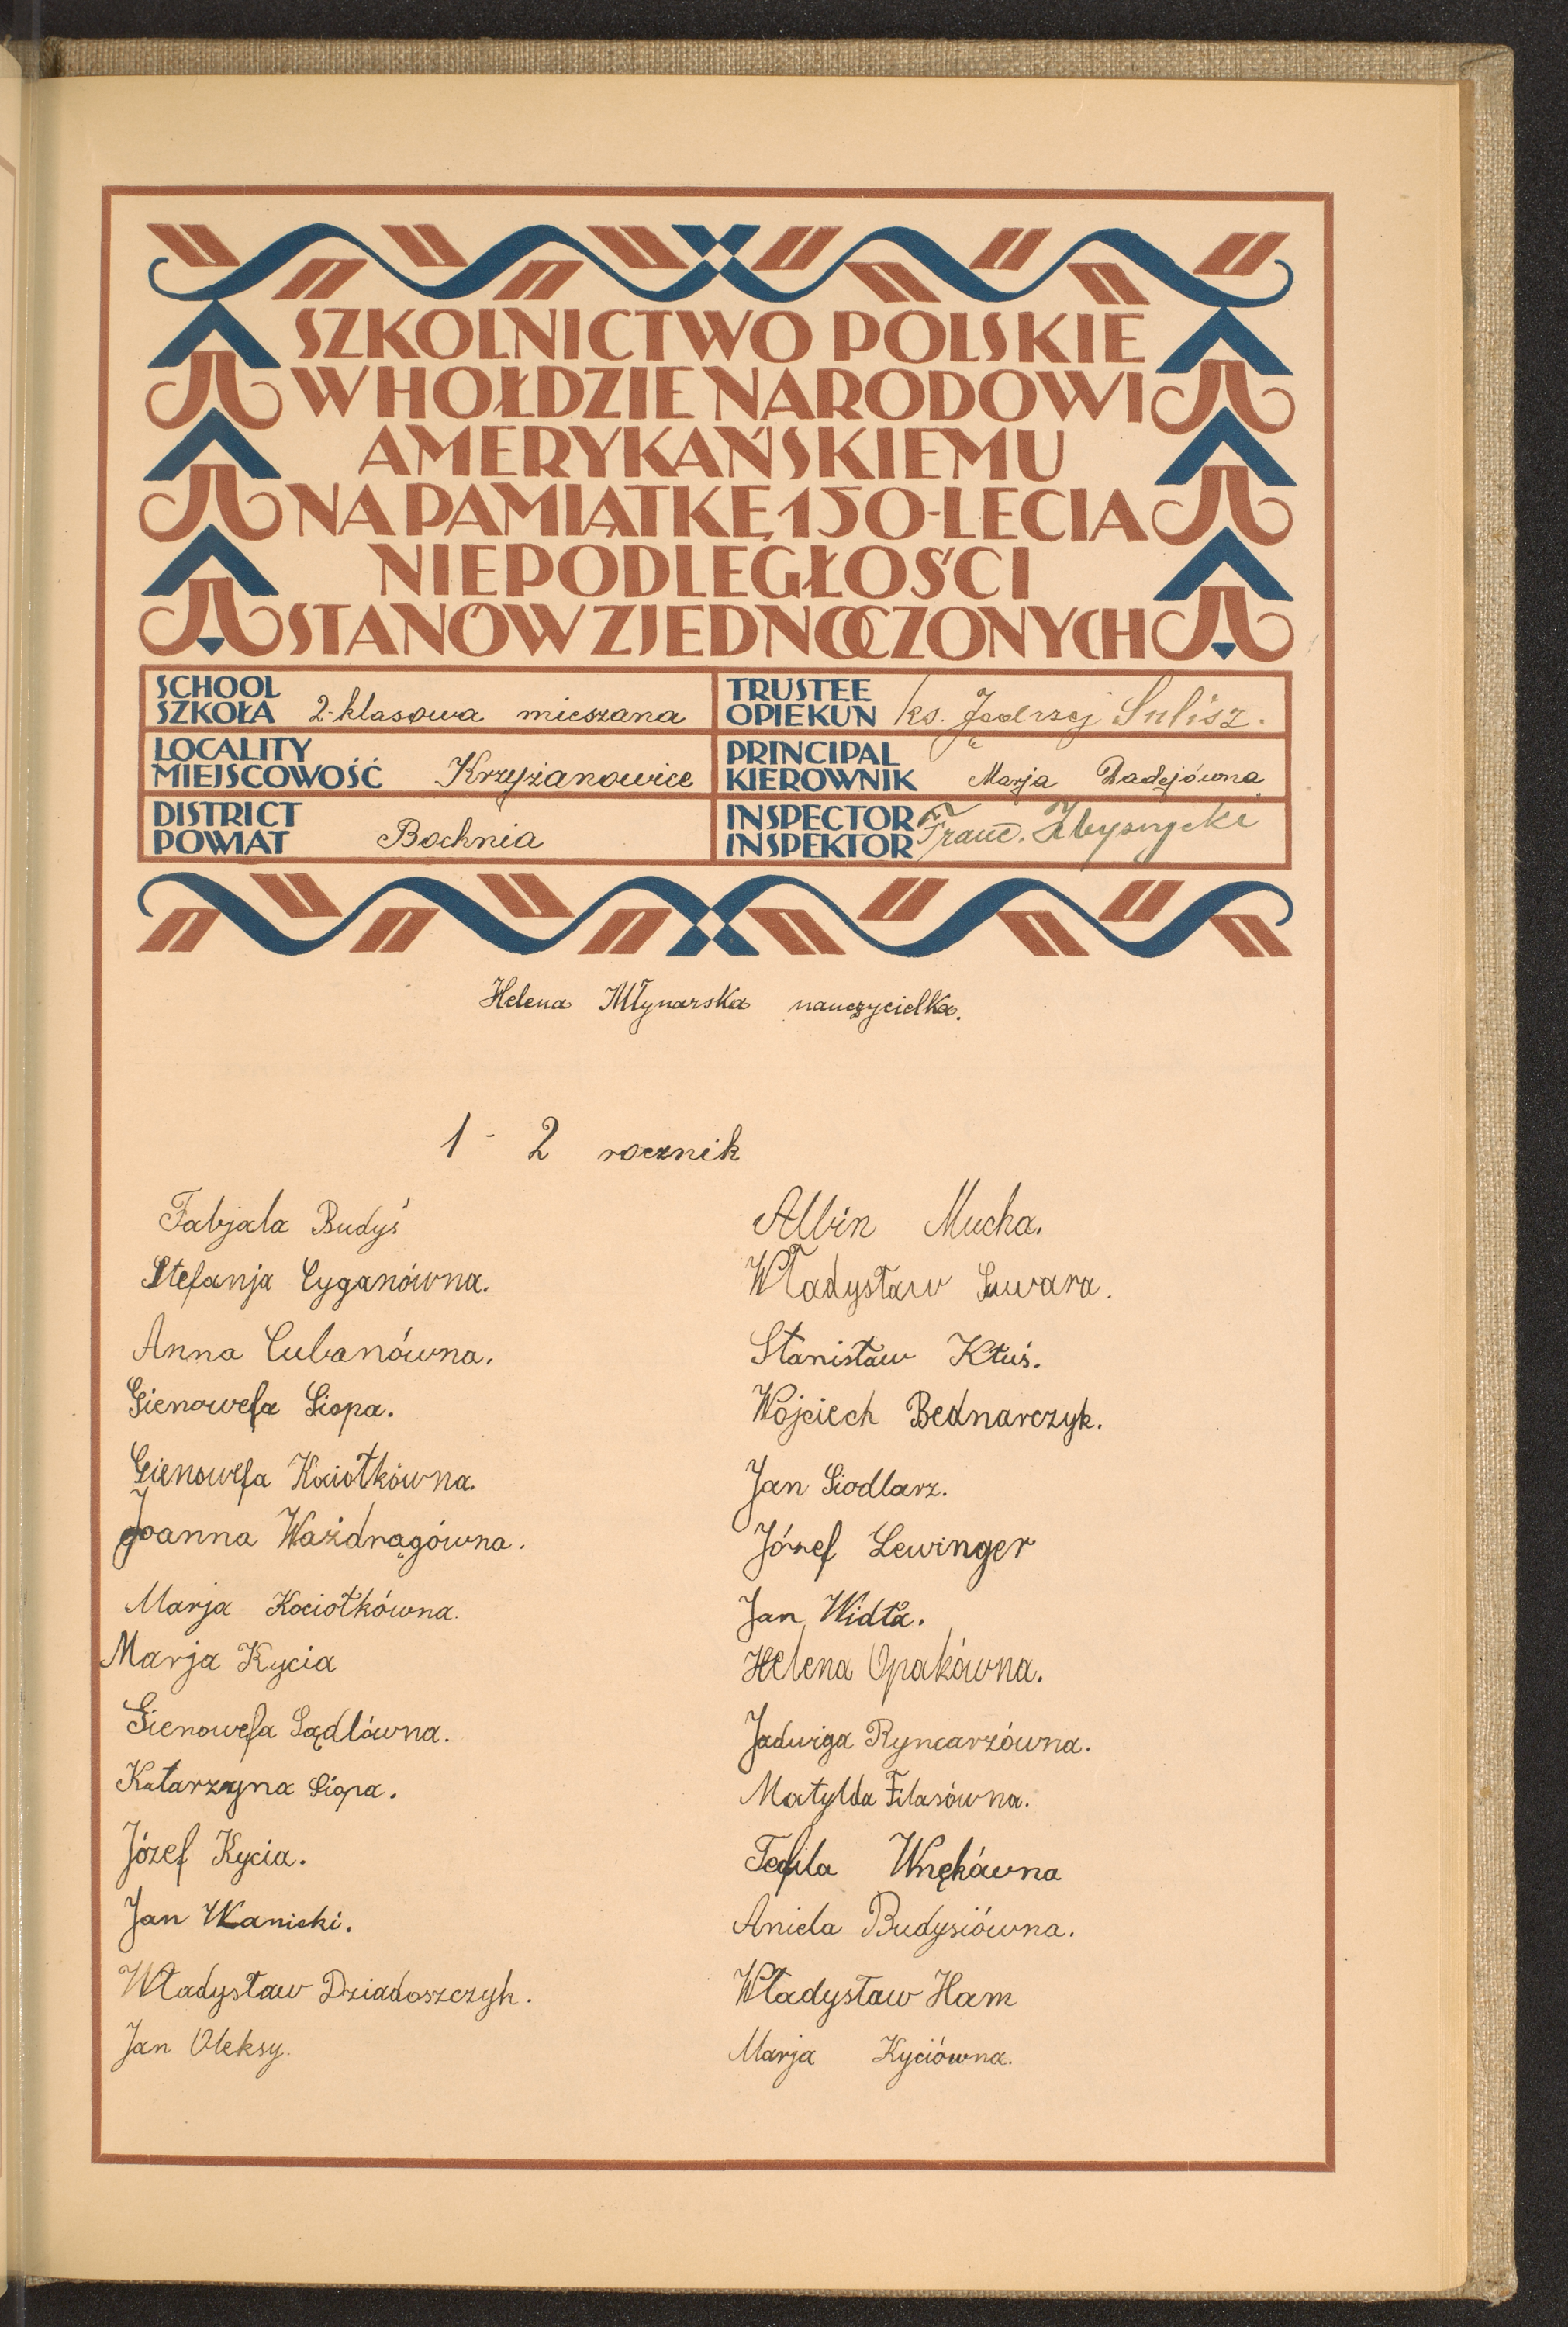 SZKOLNICTWO POLSKIE
W HOŁDZIE NARODOWI
AMERYKAŃSKIEMU
NA PAMIĄTKĘ 150-LECIA
NIEPODLEGŁOŚCI
STANÓW ZJEDNOCZONYCH
SCHOOL
SZKOŁA 2-klasowa mieszana
TRUSTEE
OPIEKUN ks. Jędrzej Sulisz.
LOCALITY
MIEJSCOWOŚĆ Krzyżanowice
PRINCIPAL
KIEROWNIK Marja Dadejówna
DISTRICT
POWIAT Bochnia
INSPECTOR
INSPEKTOR Franc.
Helena Młynarska nauczycielka.
1 - 2 rocznik
Fabjala Budyś
Stefanja Cyganówna.
Anna Cubanówna.
Gienowefa Siopa.
Gienowefa Kociołkówna.
Joanna Ważdrągówna.
Marja Kociołkówna.
Marja Kycia
Gienowefa Sądlówna.
Katarzyna Siopa.
Józef Kycia.
Jan Wanicki.
Władysław Dziadoszczyk.
Jan Oleksy.
Albin Mucha.
Władysław Suwara.
Stanisław Kłuś.
Wojciech Bednarczyk.
Jan Siodlarz.
Józef Lewinger
Jan Widła.
Helena Opakówna.
Jadwiga Ryncarzówna.
Matylda Filasówna.
Teofila Wnękówna
Aniela Budysiówna.
Władysław Ham
Marja Kyciówna.